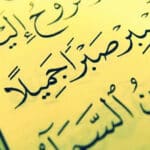 ٱلرُّوحُ إِلَيْ
صْبِرْ صَبْرًا جَمِيلًا
نُ السَّمَآ